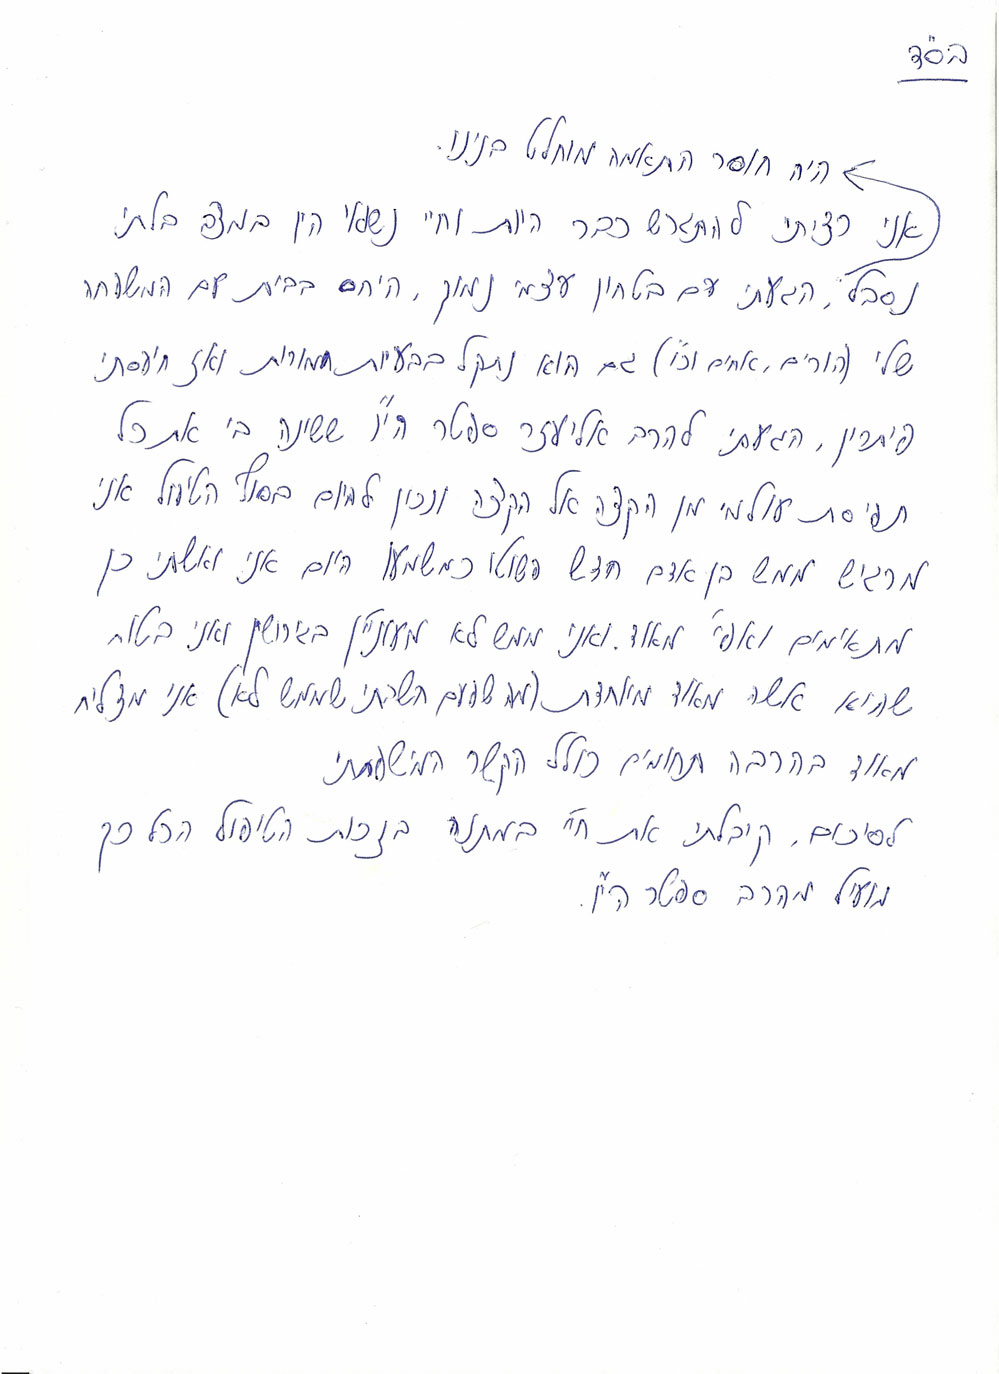 בס"ד
היה חוסר התאמה מוחלט בנינו.
אני רציתי להתגרש כבר היות וחיי נשואי היו במצב בלתי
נסבל, הגעתי עם בטחון עצמי נמוק, היחס בבית עם המשפחה
שלי (הורים, אחים וכו') גם הוא נתקל בבעיות חמורות ואז חיפשתי
פיתרון, הגעתי להרב אליעזר ספטר הי"ו ששינה בי את כל
תפיסת עולמי מן הקצה אל הקצה ונכון להיום בסוף הטיפול אני
מרגיש ממש בן אדם חדש פשוטו כמשמעו היום אני ואשתי כן
מתאימים ואפי' מאוד. ואני ממש לא מעוניין בגירושין ואני בטוח
שהיא אשה מאוד מיוחדת (מה שפעם חשבתי שממש לא) אני מצליח
מאוד בהרבה תחומים כולל הקשר המישפחתי
לסיכום, קיבלתי את חיי במתנה בזכות הטיפול הכל כך
מועיל מהרב ספטר הי"ו.